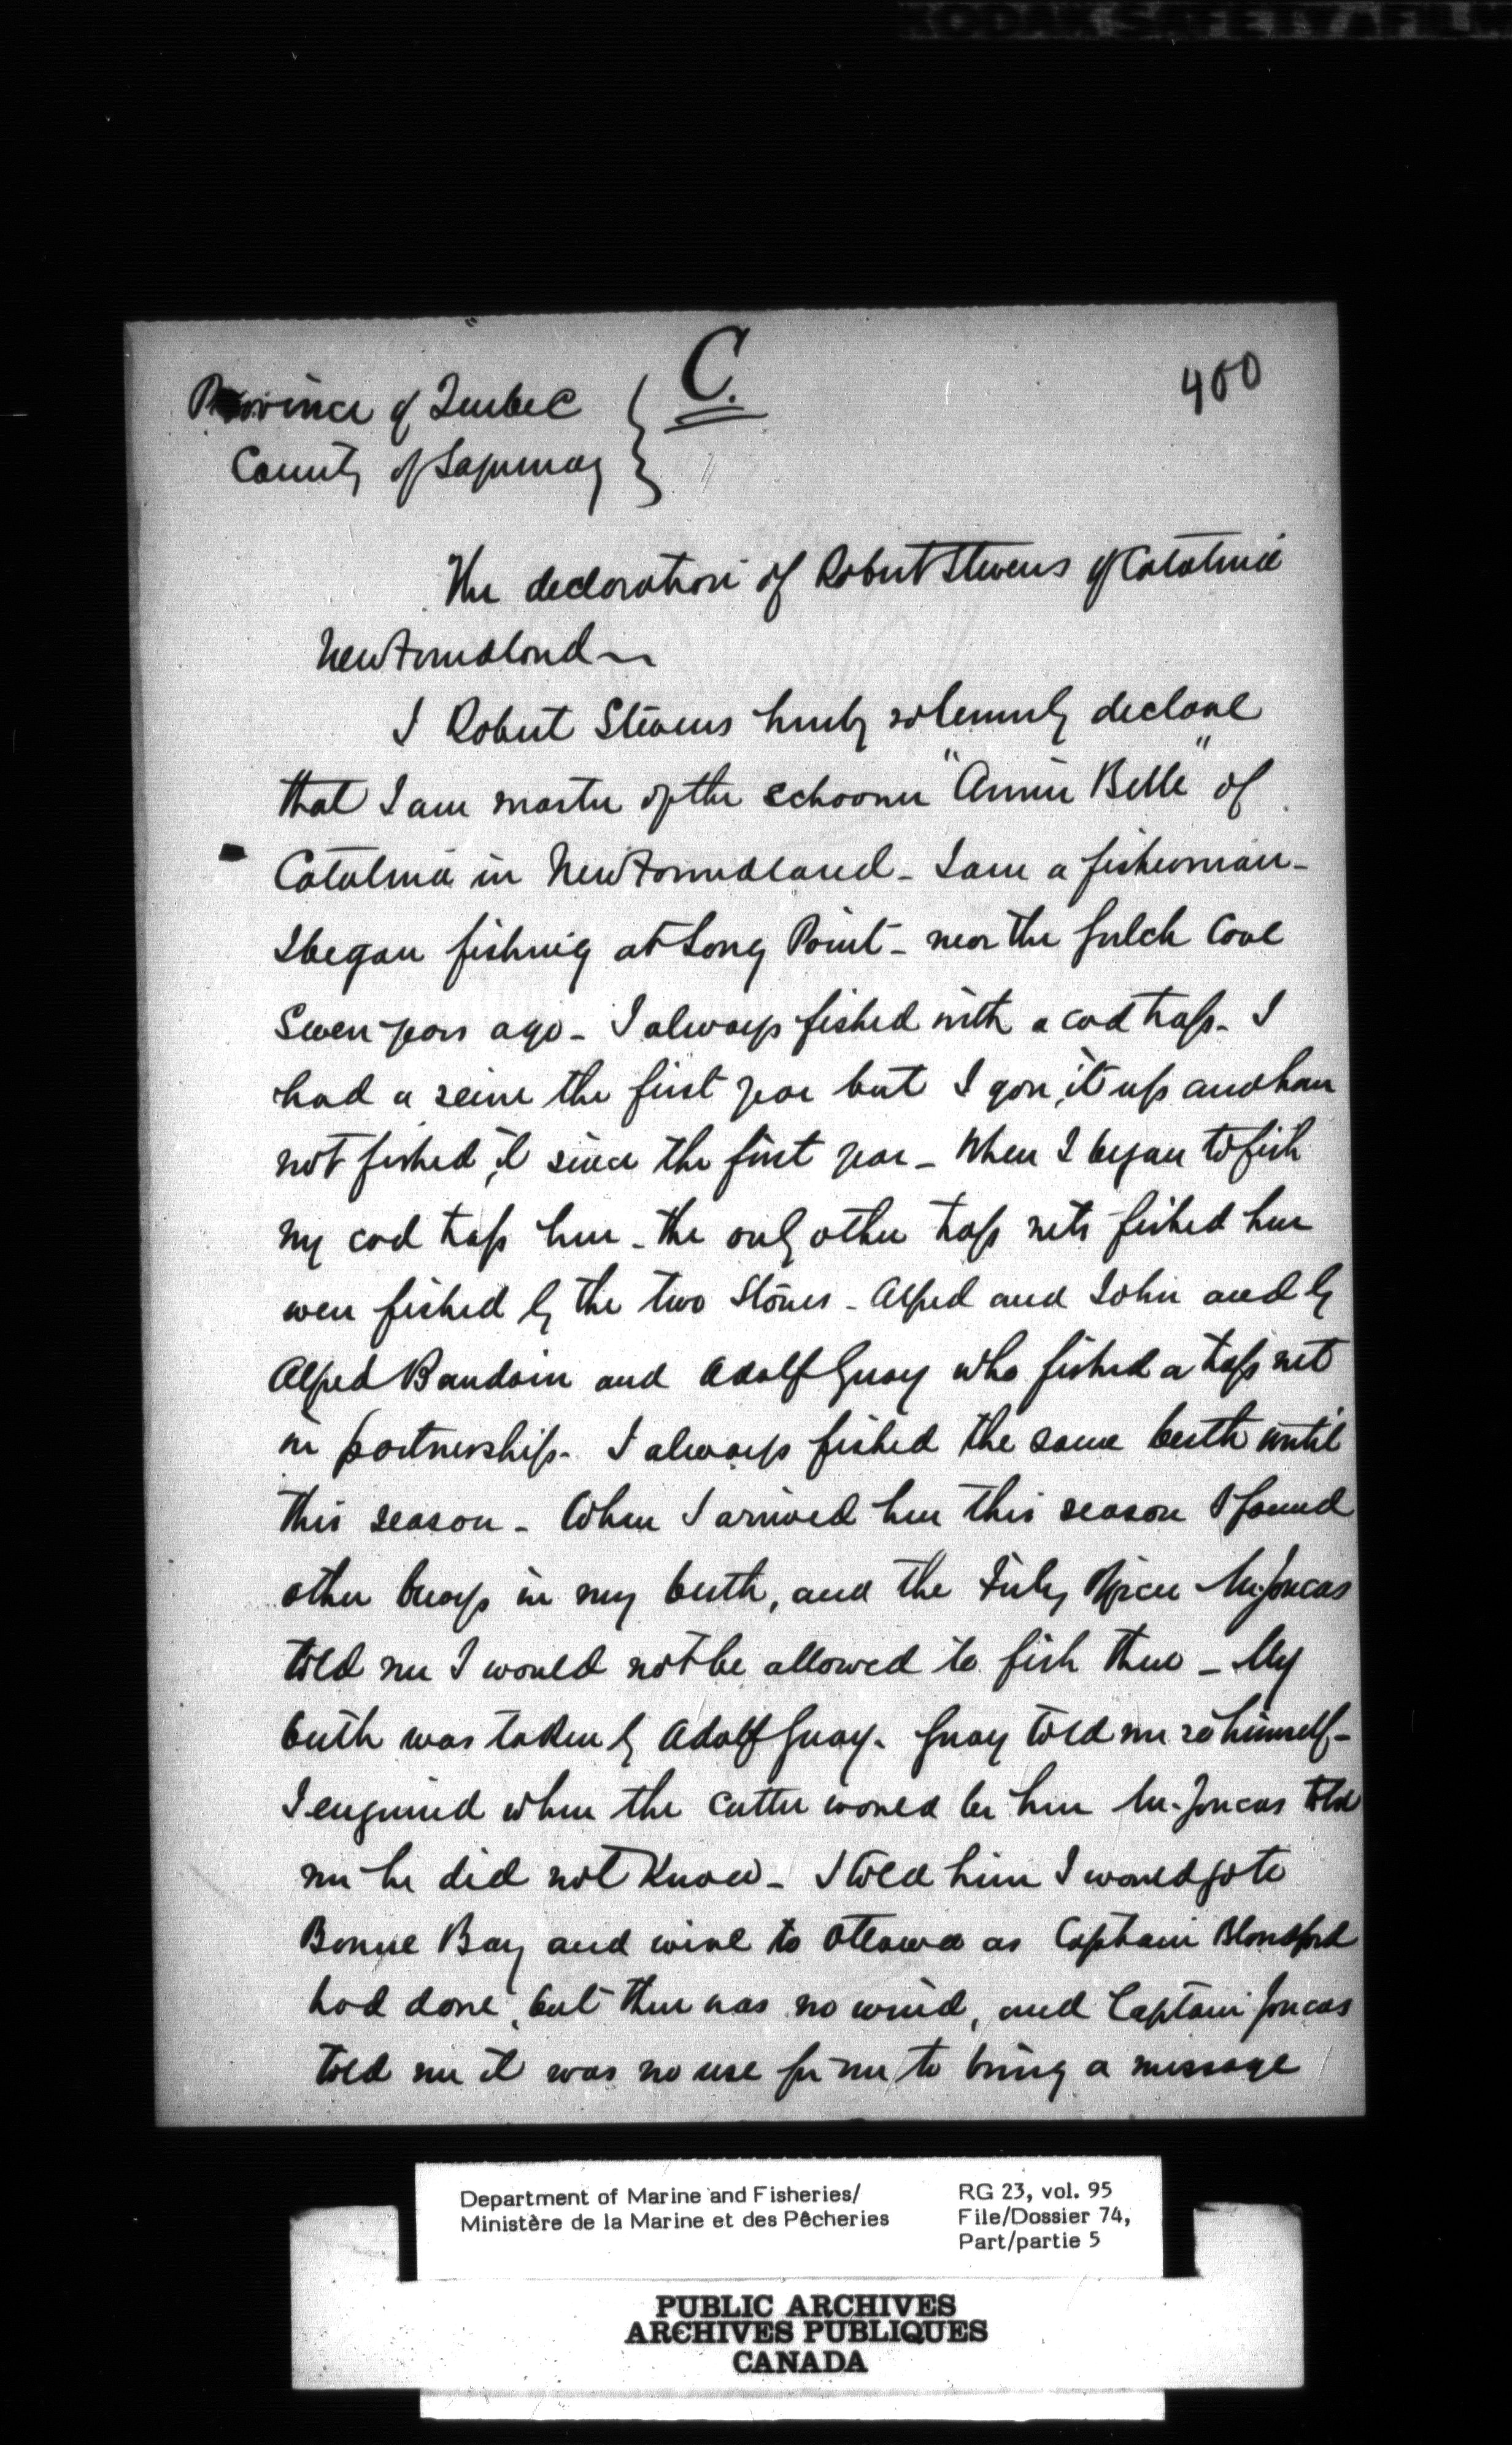 KODAK SAFETY FILM
C.
400
Province of Quebec
County of Saguenay
The declaration of Robert Stevens of Catalina
Newfoundland
I Robert Stevens hereby solemnly declare
that I am master of the schooner "Annie Belle" of
Catalina in Newfoundland - I am a fisherman -
I began fishing at Long Point - near the Gulch Cove
Seven years ago - I always fished with a cod trap - I
had a seine the first year but I gave it up and have
not fished it since the first year - When I began to fish
my cod trap here - the only other trap nets fished here
were fished by the two Stones - Alfred and John and by
Alfred Baudoin and Adolf Guay who fished a trap net
in partnership - I always fished the same berth until
this season - When I arrived here this season I found
other buoys in my berth, and the Fishy Officer Mr. Joncas
told me I would not be allowed to fish there - My
berth was taken by Adolf Guay. Guay told me so himself -
I enquired when the Cutter would be here Mr. Joncas told
me he did not know - I told him I would go to
Bonne Bay and wire to Ottawa as Captain Blandford
had done, but there was no wind, and Captain Joncas
told me it was no use for me to bring a message
Department of Marine and Fisheries/
Ministère de la Marine et des Pêcheries
RG 23, vol. 95
File/Dossier 74,
Part/partie 5
PUBLIC ARCHIVES
ARCHIVES PUBLIQUES
CANADA